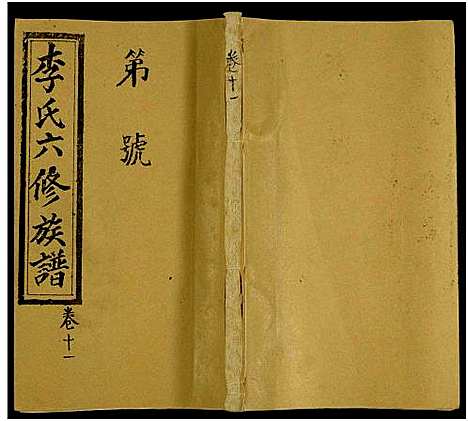 李氏六修族譜
卷十一
第號
卷十一